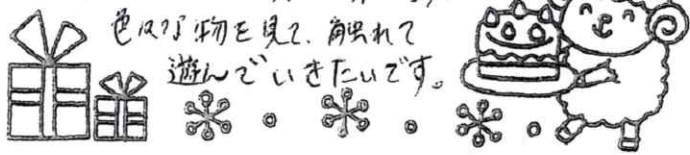 色々な物を見て、触れて
遊んでいきたいです。